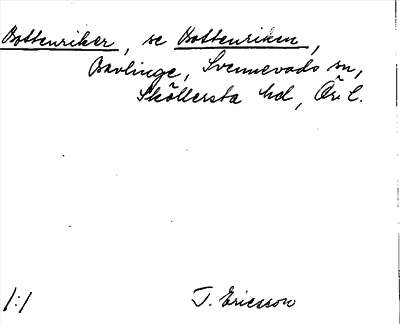 Bottenriker, se Bottenriken,
Bavlinge, Svennevads sn,
Sköllersta hd, Ör l.
1:1
T. Ericsson